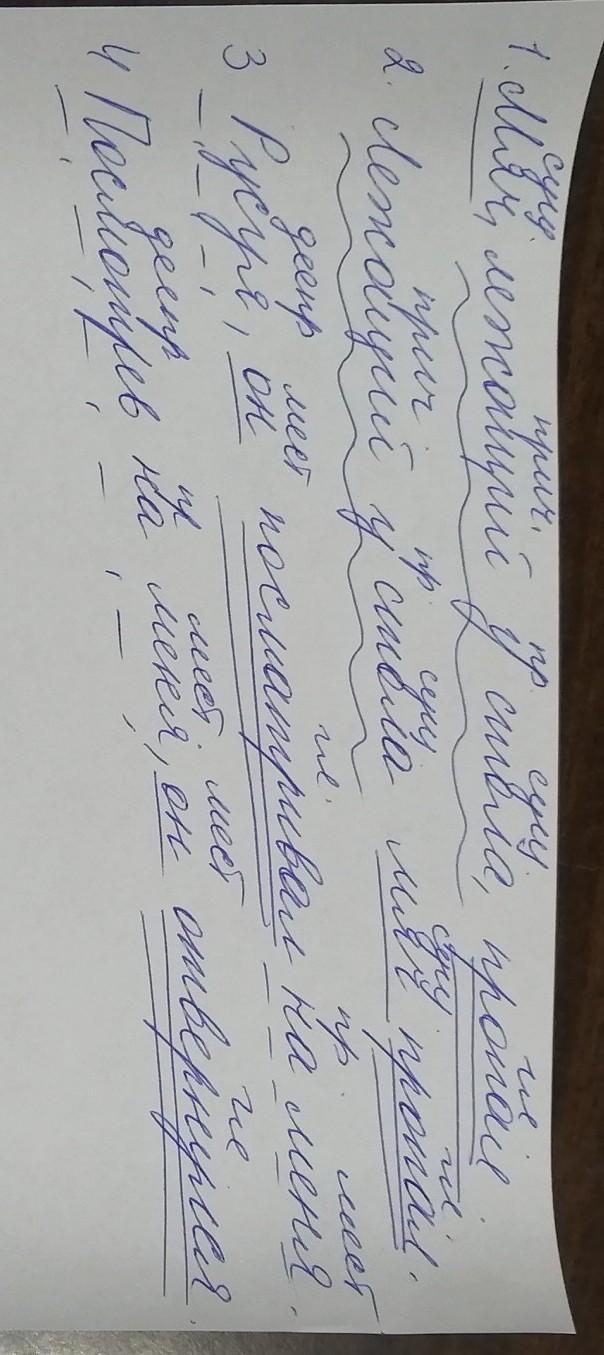 сущ. прич. пр. сущ гл
1. Мяч, лежащий у стола, пропал
прич пр. сущ сущ гл.
2. Лежащий у стола мяч пропал.
деепр мест гл. пр мест
3 Рисуя, он посматривал на меня.
деепр пр мест мест гл
4 Посмотрев на меня, он отвернулся.